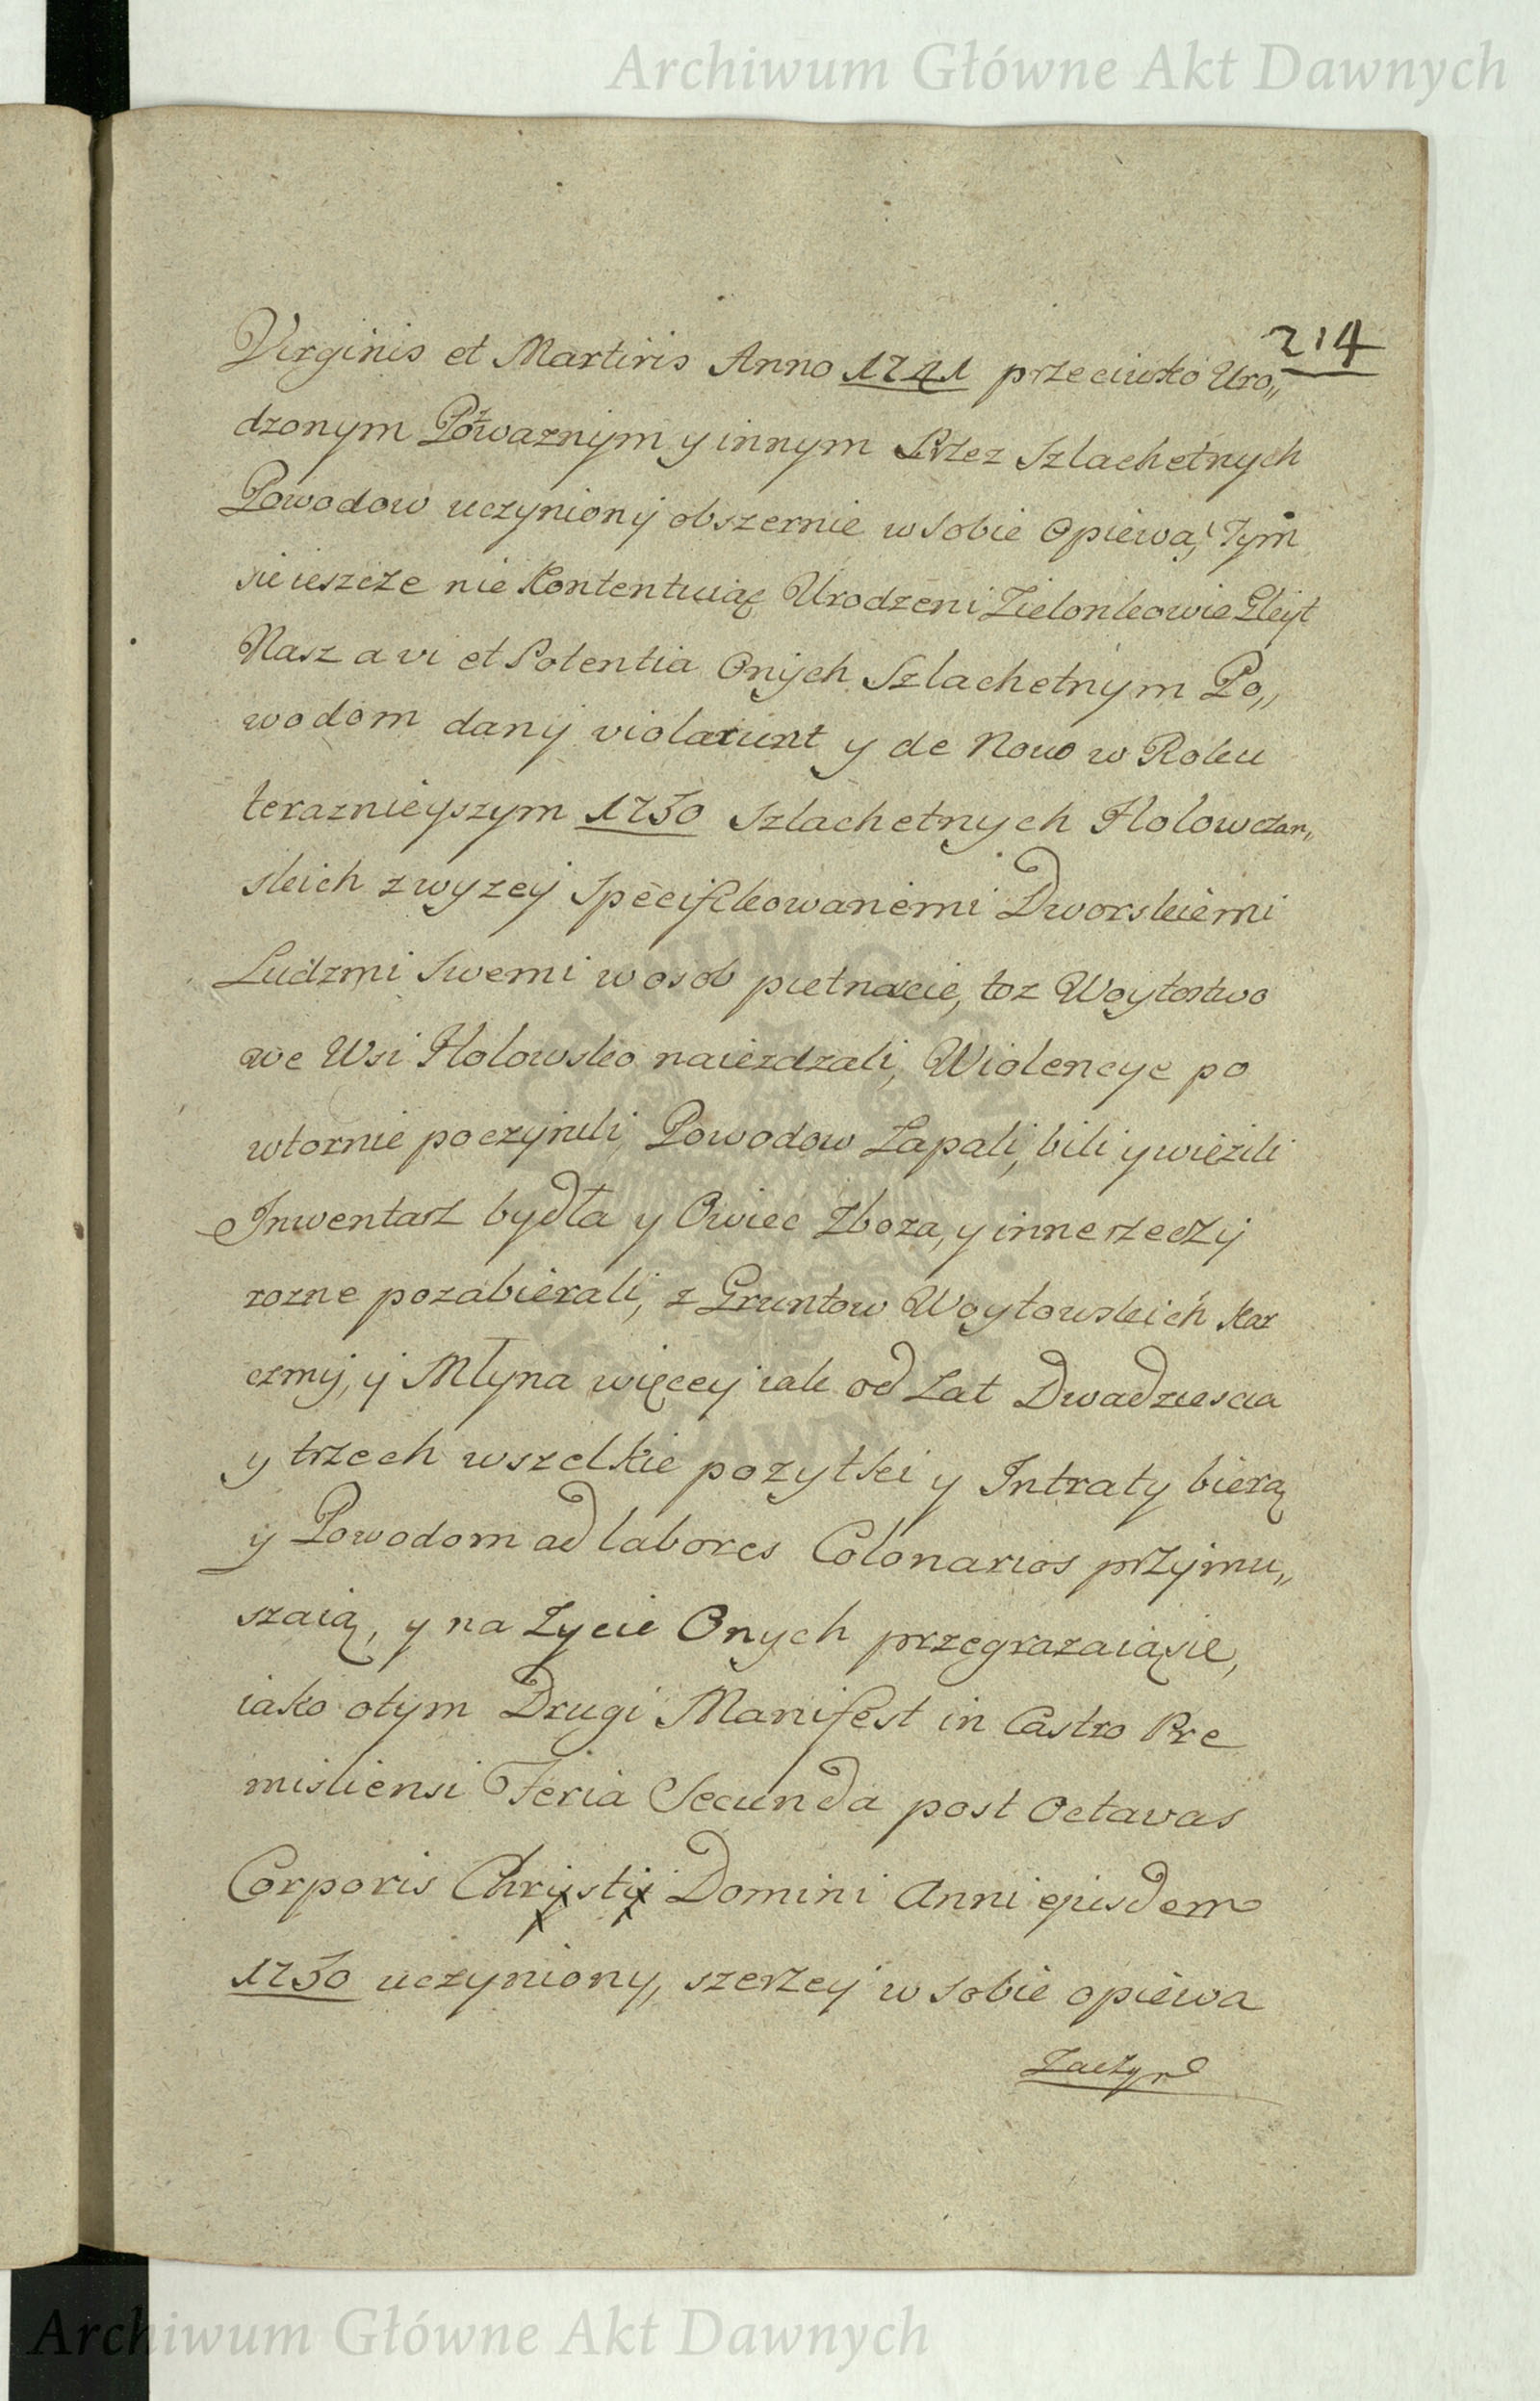 Archiwum Główne Akt Dawnych
214
Virginis et Martiris Anno 1741 przeciwko Uro„
dzonym Pozwaznym y innym Przez Szlachetnych
Powodow uczyniony obszernie w sobie Opiewa, Tym
sie ieszcze nie Kontentuiąc Urodzeni Zielonkowie Gleyt
Nasz a vi et Potentia Onych Szlachetnym Po„
wodom dany violarunt y de Novo w Roku
teraznieyszym 1750 Szlachetnych Holowczan„
skich z wyzey Specifikowanemi Dworskiemi
Ludzmi Swemi w osob pietnascie, toz Woytostwo
we Wsi Holowsko naiezdzali, Wiolencye po
wtornie poczynili, Powodow Łapali, bili y wiezili
Inwentarz bydła y Owiec Zboza, y inne rzeczy
rozne pozabierali, z Gruntow Woytowskich Kar
czmy, y Młyna więcey iak od Lat Dwadziescia
y trzech wszelkie pozytki y Intraty bierą
y Powodom ad labores Colonarios przymu„
szaią, y na Zycie Onych przegrazaią sie,
iako o tym Drugi Manifest in Castro Pre
misliensi Feria Secunda post Octavas
Corporis Chrysty Domini Anni ejusdem
1750 uczyniony, szerzey w sobie opiewa
Zaczym
Archiwum Główne Akt Dawnych